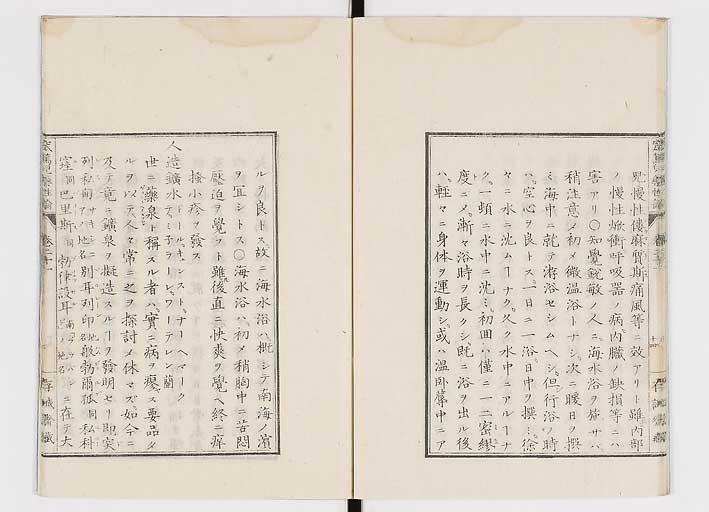 兒慢性僂麻質斯痛風等ニ效アリト雖内部
ノ慢性焮衝呼吸器ノ病内臟ノ缺損等ニハ
害アリ○知覺鋭敏ノ人ニ海水浴ヲ施サハ
稍注意メ初メ微温浴トナシ次ニ暖日ヲ撰
ミ海中ニ就テ游浴セシムヘシ但行浴ノ時
ハ空心ヲ良トス一日ニ一浴日中ヲ撰ミ徐
々ニ水ニ沈ムヿナク久ク水中ニアルヿナ
ク一頓ニ水中ニ沈ミ初回ハ僅ニ一二密
度ニメ漸々浴時ヲ長クシ既ニ浴ヲ出ル後
ハ輕々ニ身体ヲ運動シ或ハ温卧蓐中ニア
ルヲ良トス故ニ海水浴ハ概シテ南海ノ濱
ヲ宜シトス○海水浴ハ初メ稍胸中ニ苦悶
壓迫ヲ覺フト雖後直ニ快爽ヲ覺ヘ終ニ痺
掻小疹ヲ發ス
人造鑛水 ミネラーレワーテレン蘭
世ニ藥泉ト稱スル者ハ實ニ病ヲ療ス要品タ
ルヲ以テ人々常ニ之ヲ探討メ休マズ如今ニ
及テ竟ニ鑛泉ヲ擬造スルヿヲ發明セリ即実
列私 地名ニ別耳列印 地名般勃爾孤 同私科
窪 同巴里斯 勃律設耳 地名ニ在テ大
藥性論 巻二十一 存誠齋藏